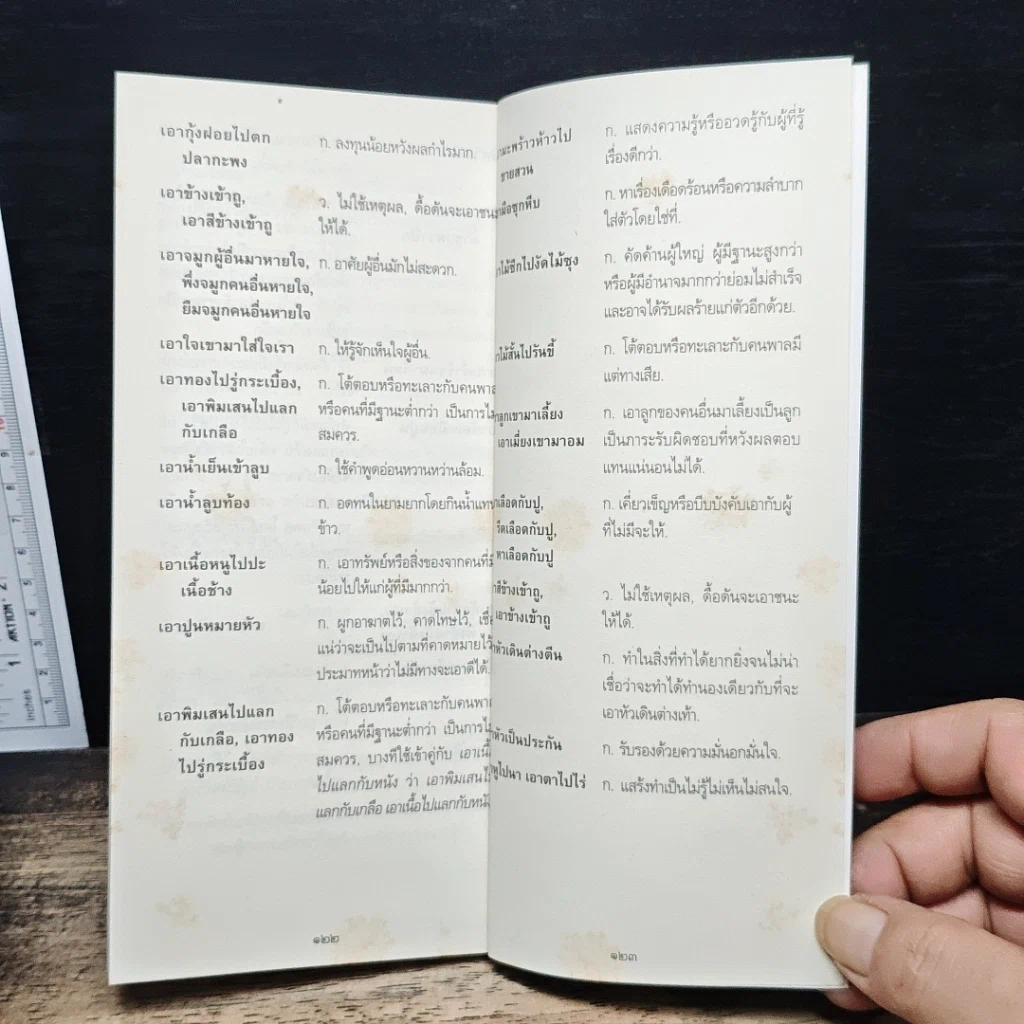 เอากุ้งฝอยไปตก
ปลากะพง
ก. ลงทุนน้อยหวังผลกำไรมาก.
เอาข้างเข้าถู,
เอาสีข้างเข้าถู
ว. ไม่ใช้เหตุผล, ดื้อดันจะเอาชนะ
ให้ได้.
เอาจมูกผู้อื่นมาหายใจ,
พึ่งจมูกคนอื่นหายใจ,
ยืมจมูกคนอื่นหายใจ
ก. อาศัยผู้อื่นมักไม่สะดวก.
เอาใจเขามาใส่ใจเรา
ก. ให้รู้จักเห็นใจผู้อื่น.
เอาทองไปรู่กระเบื้อง,
เอาพิมเสนไปแลก
กับเกลือ
ก. โต้ตอบหรือทะเลาะกับคนพาล
หรือคนที่มีฐานะต่ำกว่า เป็นการไม่
สมควร.
เอาน้ำเย็นเข้าลูบ
ก. ใช้คำพูดอ่อนหวานหว่านล้อม.
เอาน้ำลูบท้อง
ก. อดทนในยามยากโดยกินน้ำแทน
ข้าว.
เอาเนื้อหนูไปปะ
เนื้อช้าง
ก. เอาทรัพย์หรือสิ่งของจากคนที่มี
น้อยไปให้แก่ผู้ที่มีมากกว่า.
เอาปูนหมายหัว
ก. ผูกอาฆาตไว้, คาดโทษไว้, เชื่อ
แน่ว่าจะเป็นไปตามที่คาดหมายไว้,
ประมาทหน้าว่าไม่มีทางจะเอาดีได้.
เอาพิมเสนไปแลก
กับเกลือ, เอาทอง
ไปรู่กระเบื้อง
ก. โต้ตอบหรือทะเลาะกับคนพาล
หรือคนที่มีฐานะต่ำกว่า เป็นการไม่
สมควร, บางทีใช้เข้าคู่กับ เอาเนื้อ
ไปแลกกับหนัง ว่า เอาพิมเสนไป
แลกกับเกลือ เอาเนื้อไปแลกกับหนัง
๑๒๒
มะพร้าวห้าวไป
ขายสวน
ก. แสดงความรู้หรืออวดรู้กับผู้ที่รู้
เรื่องดีกว่า.
มือซุกหีบ
ก. หาเรื่องเดือดร้อนหรือความลำบาก
ใส่ตัวโดยใช่ที่.
ไม้ซีกไปงัดไม้ซุง
ก. คัดค้านผู้ใหญ่ ผู้มีฐานะสูงกว่า
หรือผู้มีอำนาจมากกว่าย่อมไม่สำเร็จ
และอาจได้รับผลร้ายแก่ตัวอีกด้วย.
ไม้สั้นไปรันขี้
ก. โต้ตอบหรือทะเลาะกับคนพาลมี
แต่ทางเสีย.
ลูกเขามาเลี้ยง
เอาเมี่ยงเขามาอม
ก. เอาลูกของคนอื่นมาเลี้ยงเป็นลูก
เป็นภาระรับผิดชอบที่หวังผลตอบ
แทนแน่นอนไม่ได้.
เลือดกับปู,
รีดเลือดกับปู,
หาเลือดกับปู
ก. เคี่ยวเข็ญหรือบีบบังคับเอากับผู้
ที่ไม่มีจะให้.
สีข้างเข้าถู,
เอาข้างเข้าถู
ว. ไม่ใช้เหตุผล, ดื้อดันจะเอาชนะ
ให้ได้.
หัวเดินต่างตีน
ก. ทำในสิ่งที่ทำได้ยากยิ่งจนไม่น่า
เชื่อว่าจะทำได้ทำนองเดียวกับที่จะ
เอาหัวเดินต่างเท้า.
หัวเป็นประกัน
ก. รับรองด้วยความมั่นอกมั่นใจ.
หูไปนา เอาตาไปไร่
ก. แสร้งทำเป็นไม่รู้ไม่เห็นไม่สนใจ.
๑๒๓
inches
1
2